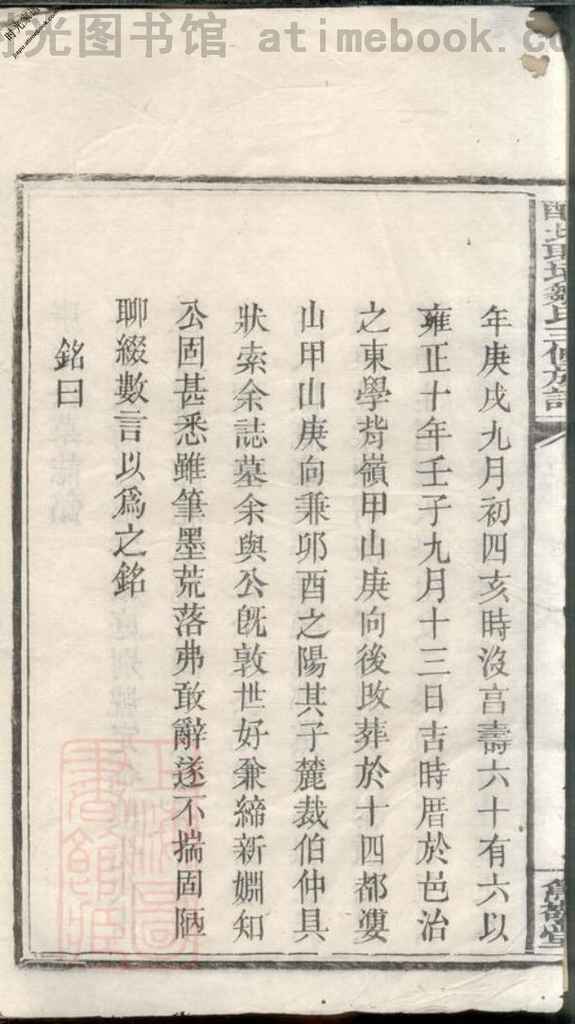 时光图书馆 atimebook.com
年庚戌九月初四亥時沒亯壽六十有六以
雍正十年壬子九月十三日吉時厝於邑治
之東學背嶺甲山庚向後改葬於十四都婁
山甲山庚向兼卯酉之陽其子麓裁伯仲具
狀索余誌墓余與公旣敦世好兼締新姻知
公固甚悉雖筆墨荒落弗敢辭遂不揣固陋
聊綴數言以爲之銘
銘曰
氏三修族譜
堂